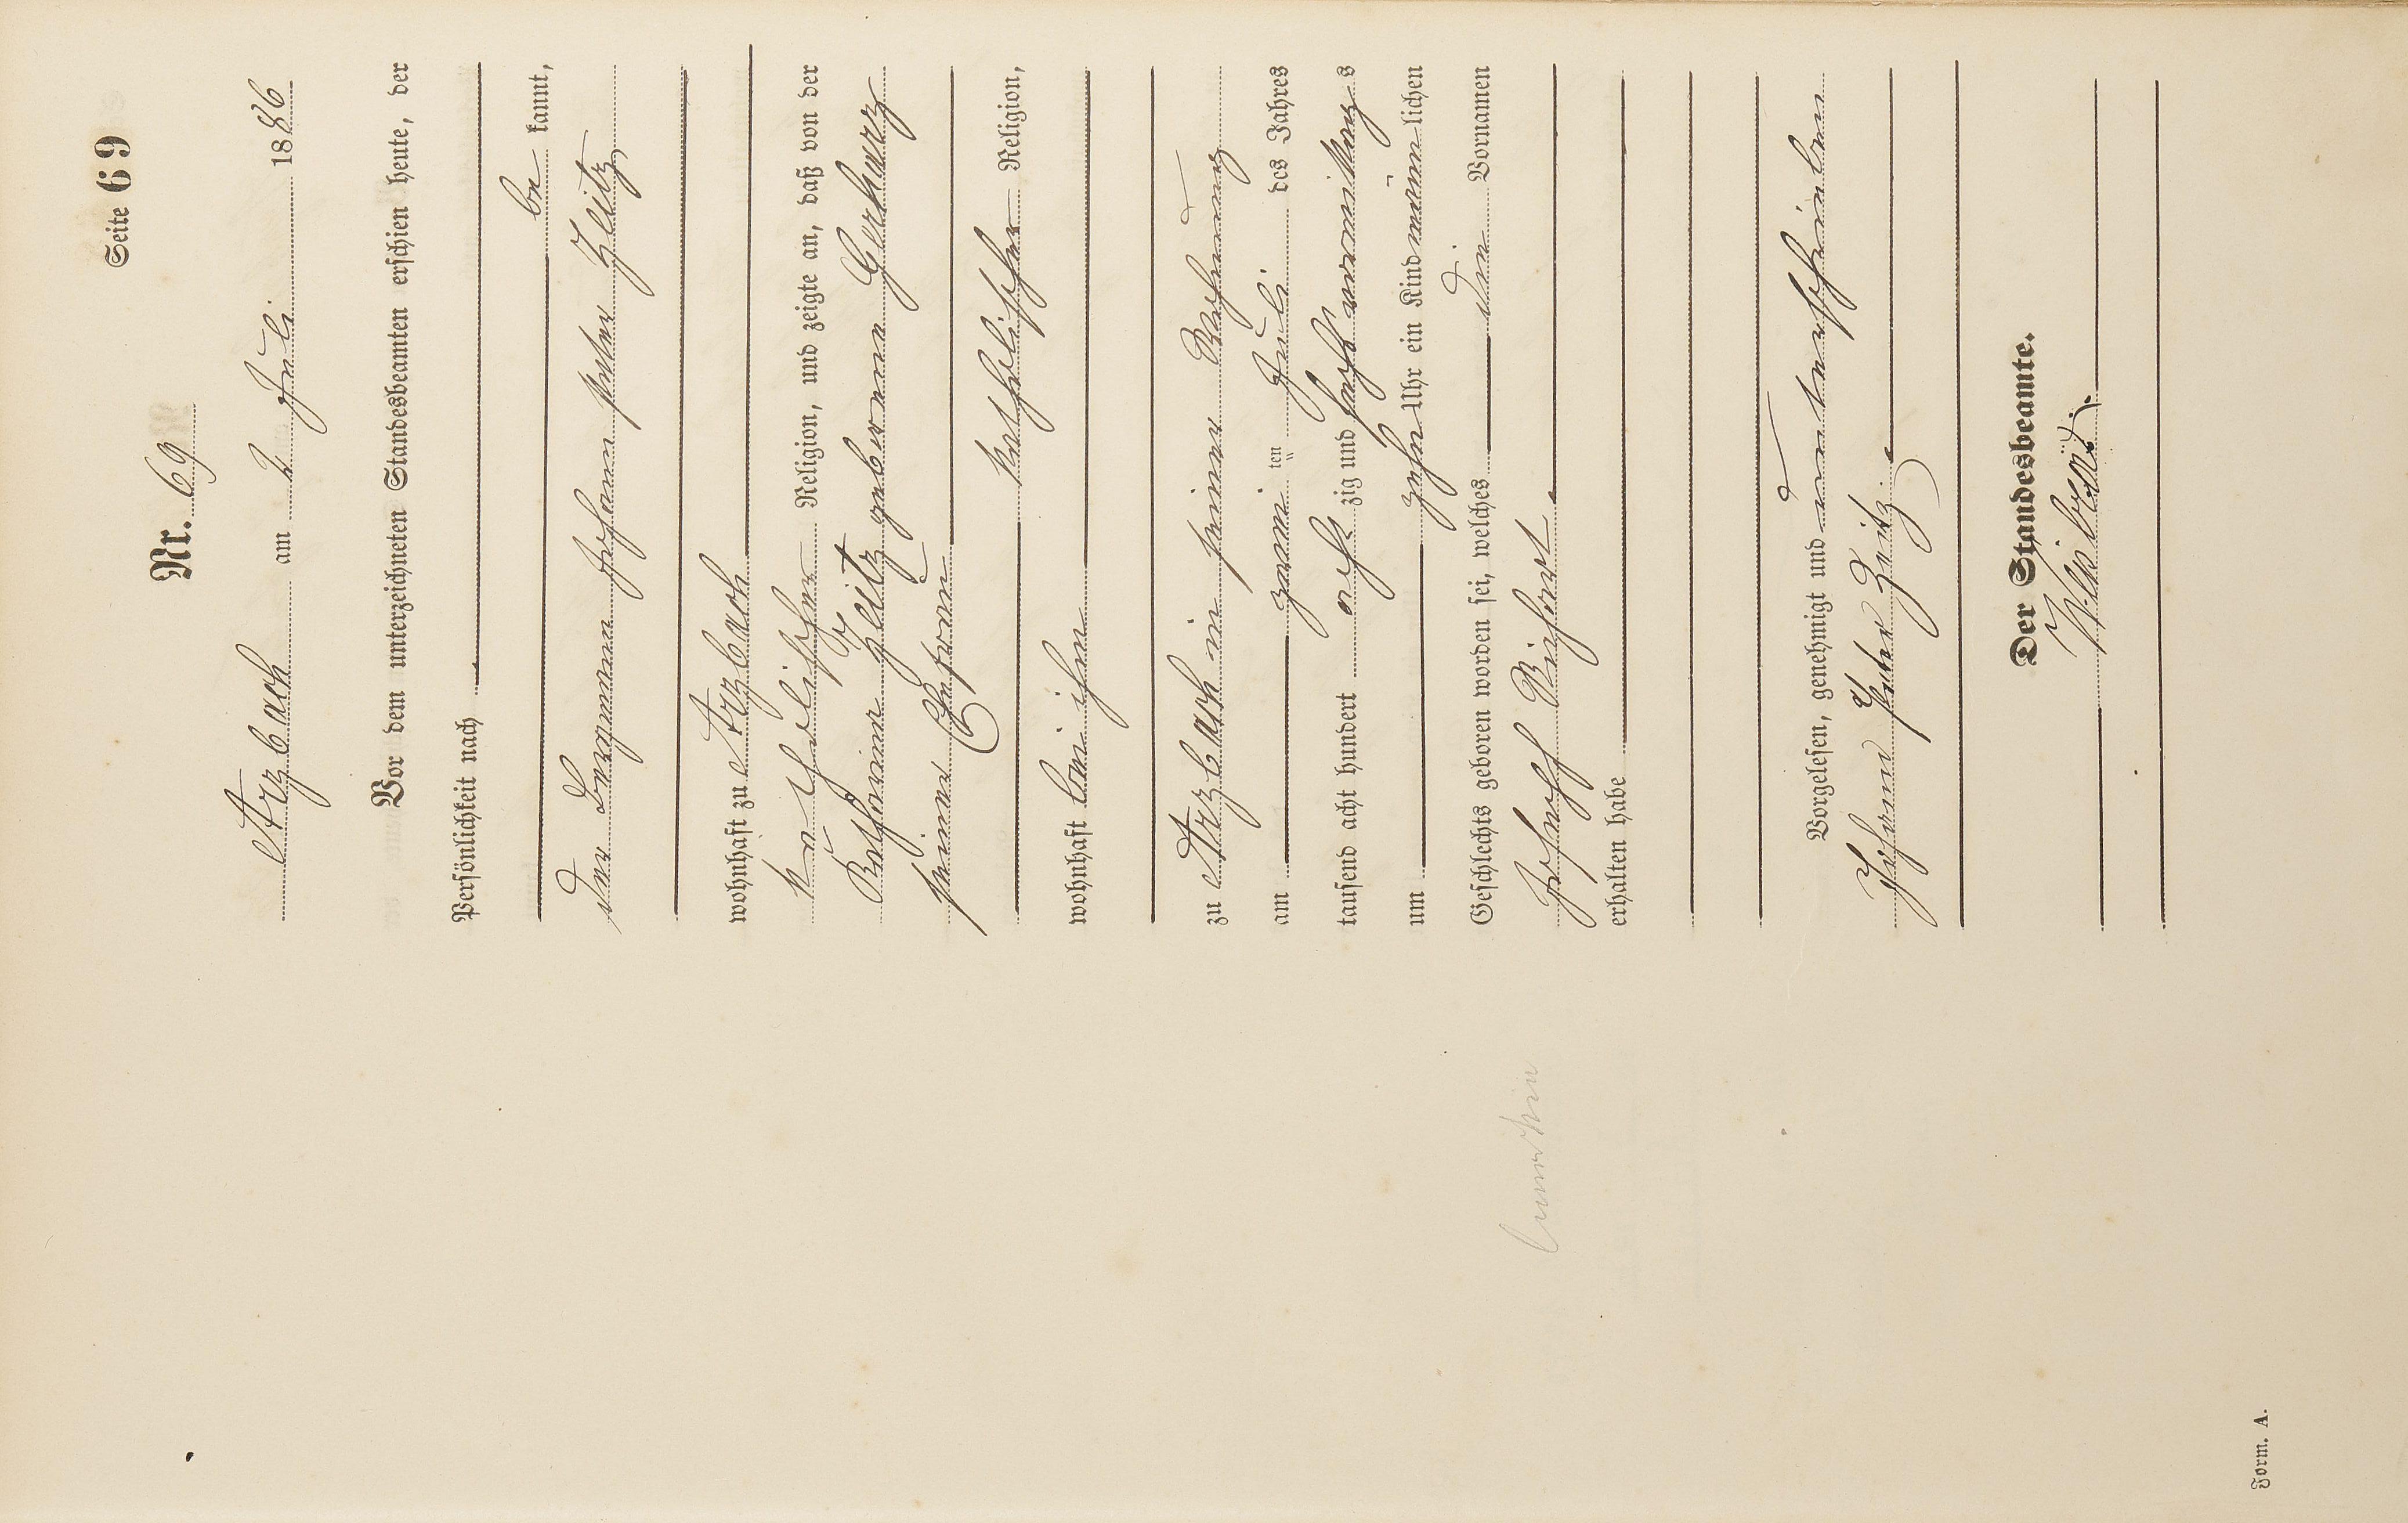 Seite 69
Nr. 69
Arzbach am 2 Juli 1886
Vor dem unterzeichneten Standesbeamten erschien heute, der
Persönlichkeit nach
be kannt,
der Bergmann Johann Peter Zeitz
wohnhaft zu Arzbach
katholischer Religion, und zeigte an, daß von der
Katharina Zeitz geborenen Gerharz
seiner Ehefrau
katholischer Religion,
wohnhaft bei ihm
zu Arzbach in seiner Wohnung
am zwei ten Juli des Jahres
tausend acht hundert acht zig und sechs vormittag s
um zehn Uhr ein Kind männ lichen
Geschlechts geboren worden sei, welches die Vornamen
Joseph
erhalten habe
Vorgelesen, genehmigt und unterschrieben
Johann Peter Zeitz.
Der Standesbeamte.
Form. A.